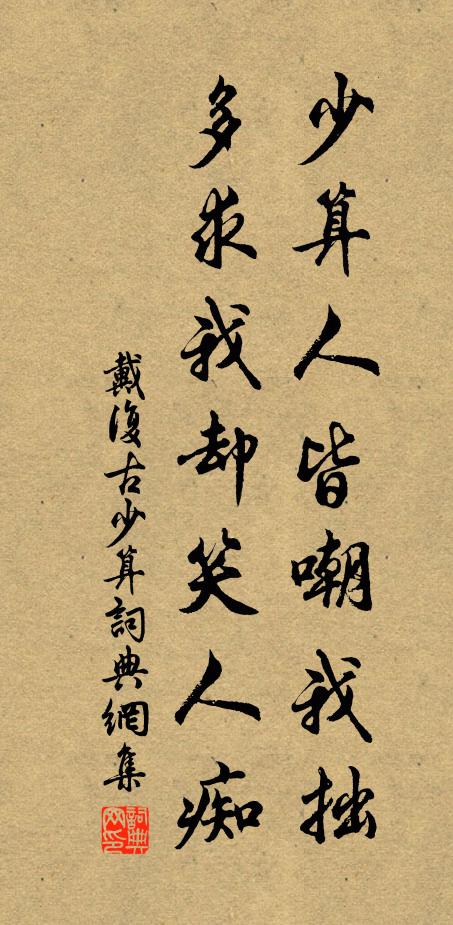 少算人皆嘲我拙
多求我却笑人痴
戴復古少算詞典網集
詞典网印